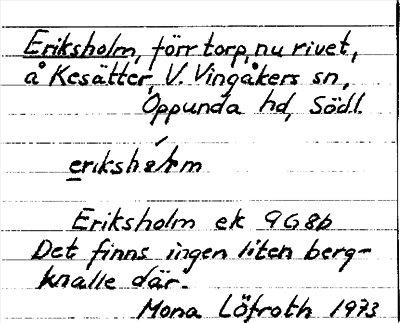 Eriksholm, förr torp, nu rivet,
å Kesätter, V. Vingåkers sn,
Oppunda hd, Södl.
Eriksholm ek 9G8b
Det finns ingen liten berg-
knalle där.
Mona Löfroth 1973